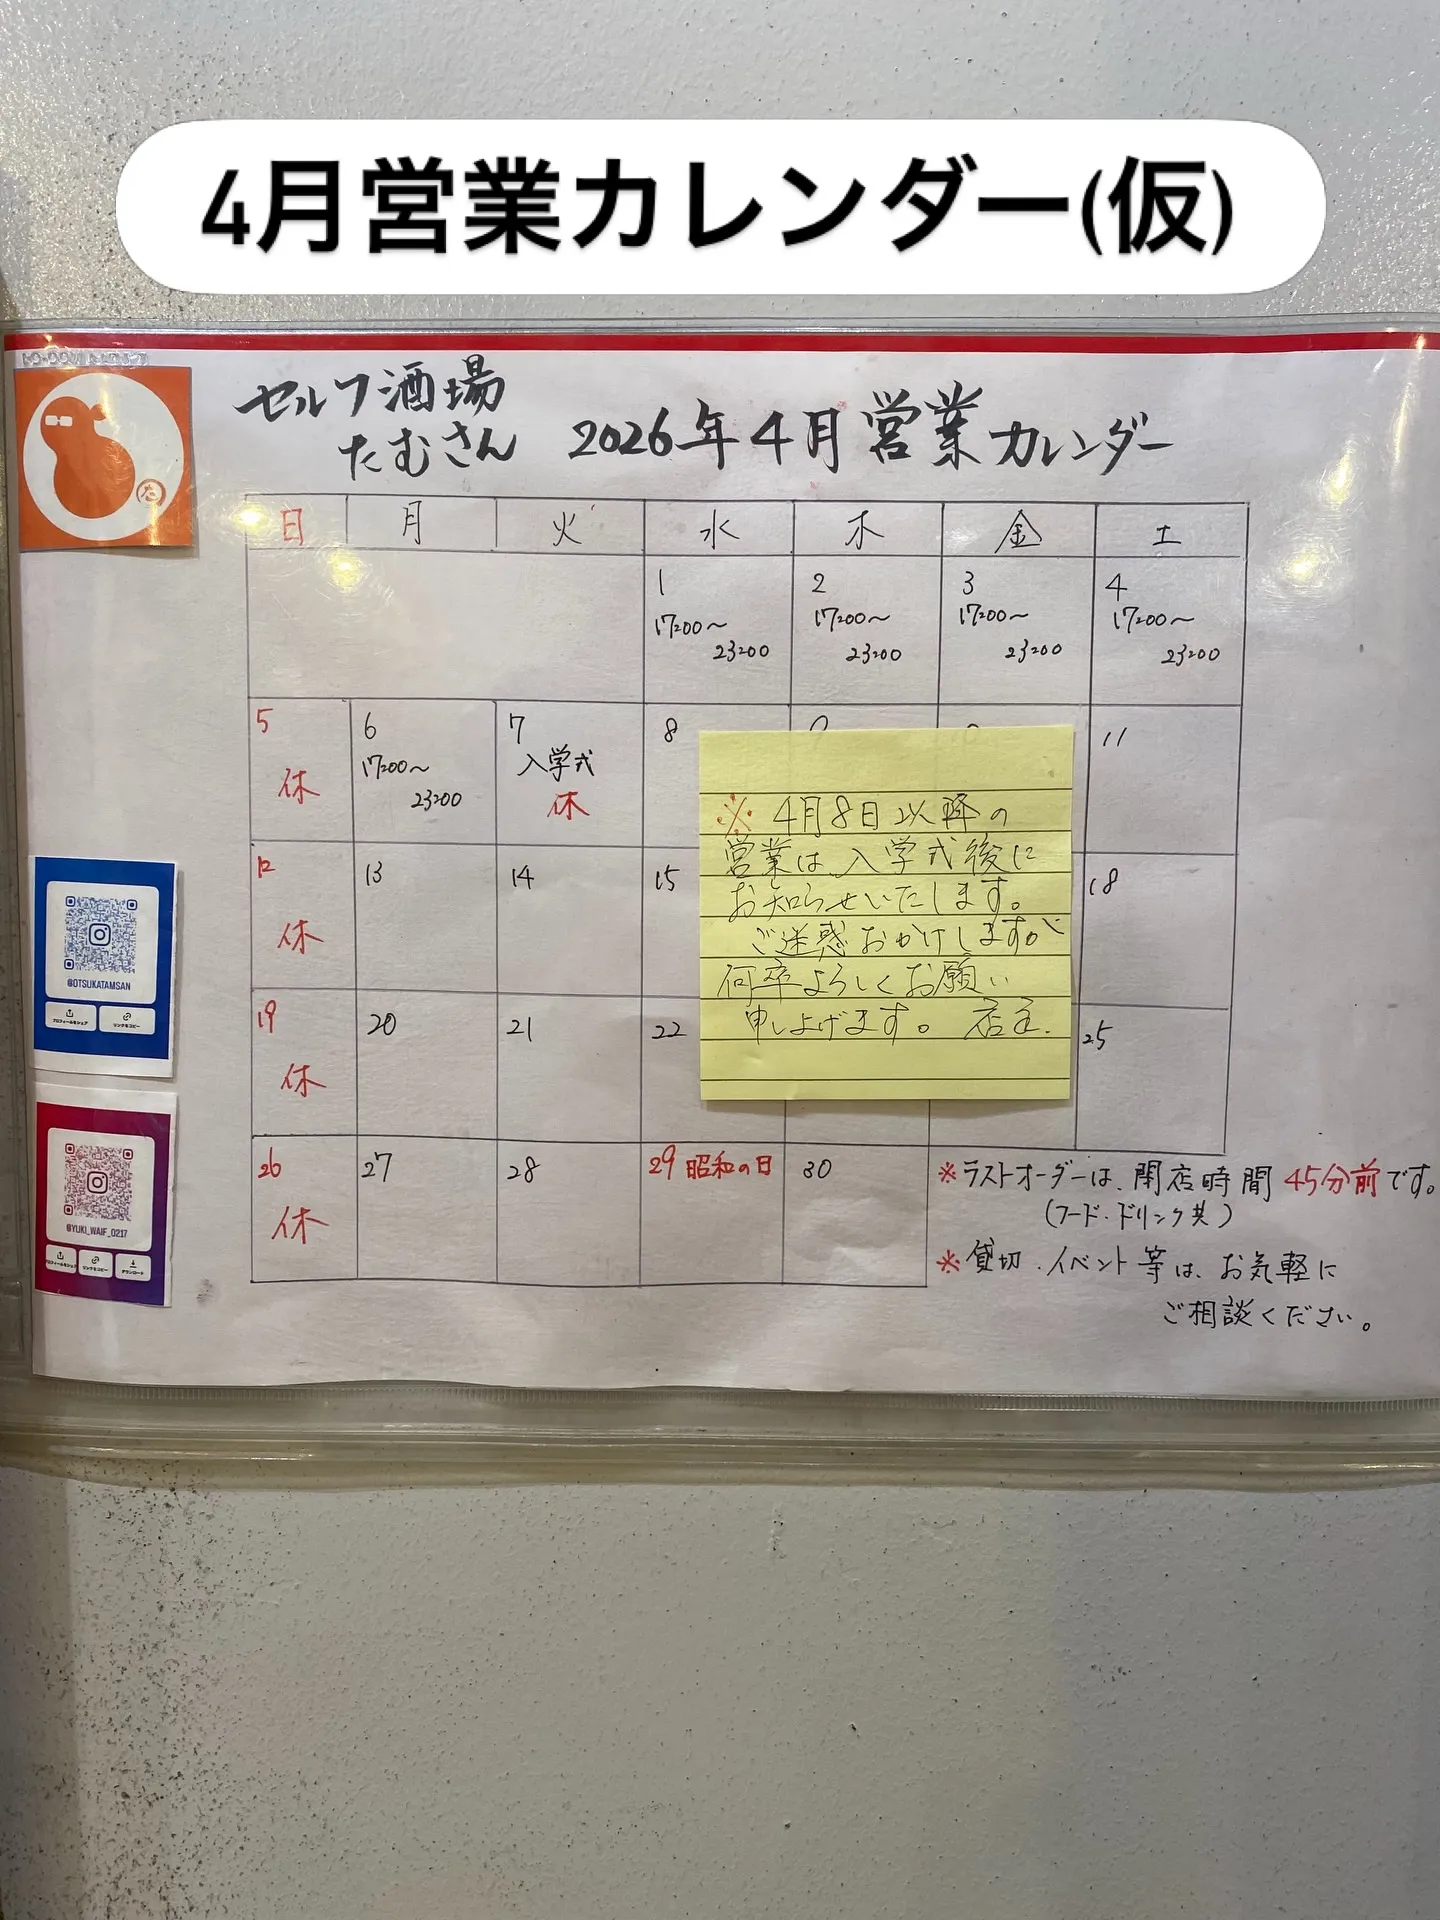 4月営業カレンダー(仮)
セルフ酒場
たむさん
2026年4月営業カレンダー
日 月 火 水 木 金 土
1 2 3 4
17:00〜 17:00〜 17:00〜 17:00〜
23:00 23:00 23:00 23:00
5 6 7 8 11
17:00〜 入学式
休 23:00 休
12 13 14 15 18
休
19 20 21 22 25
休
26 27 28 29 昭和の日 30
休
※ 4月8日以降の
営業は、入学式後に
お知らせいたします。
ご迷惑おかけしますが
何卒よろしくお願い
申し上げます。 店主.
※ラストオーダーは、閉店時間45分前です。
(フード・ドリンク共)
※貸切・イベント等は、お気軽に
ご相談ください。
た
@OTSUKATAMSAN
プロフィールをシェア リンクをコピー
@YUKI_WAIF_0217
プロフィールをシェア リンクをコピー ダウンロード